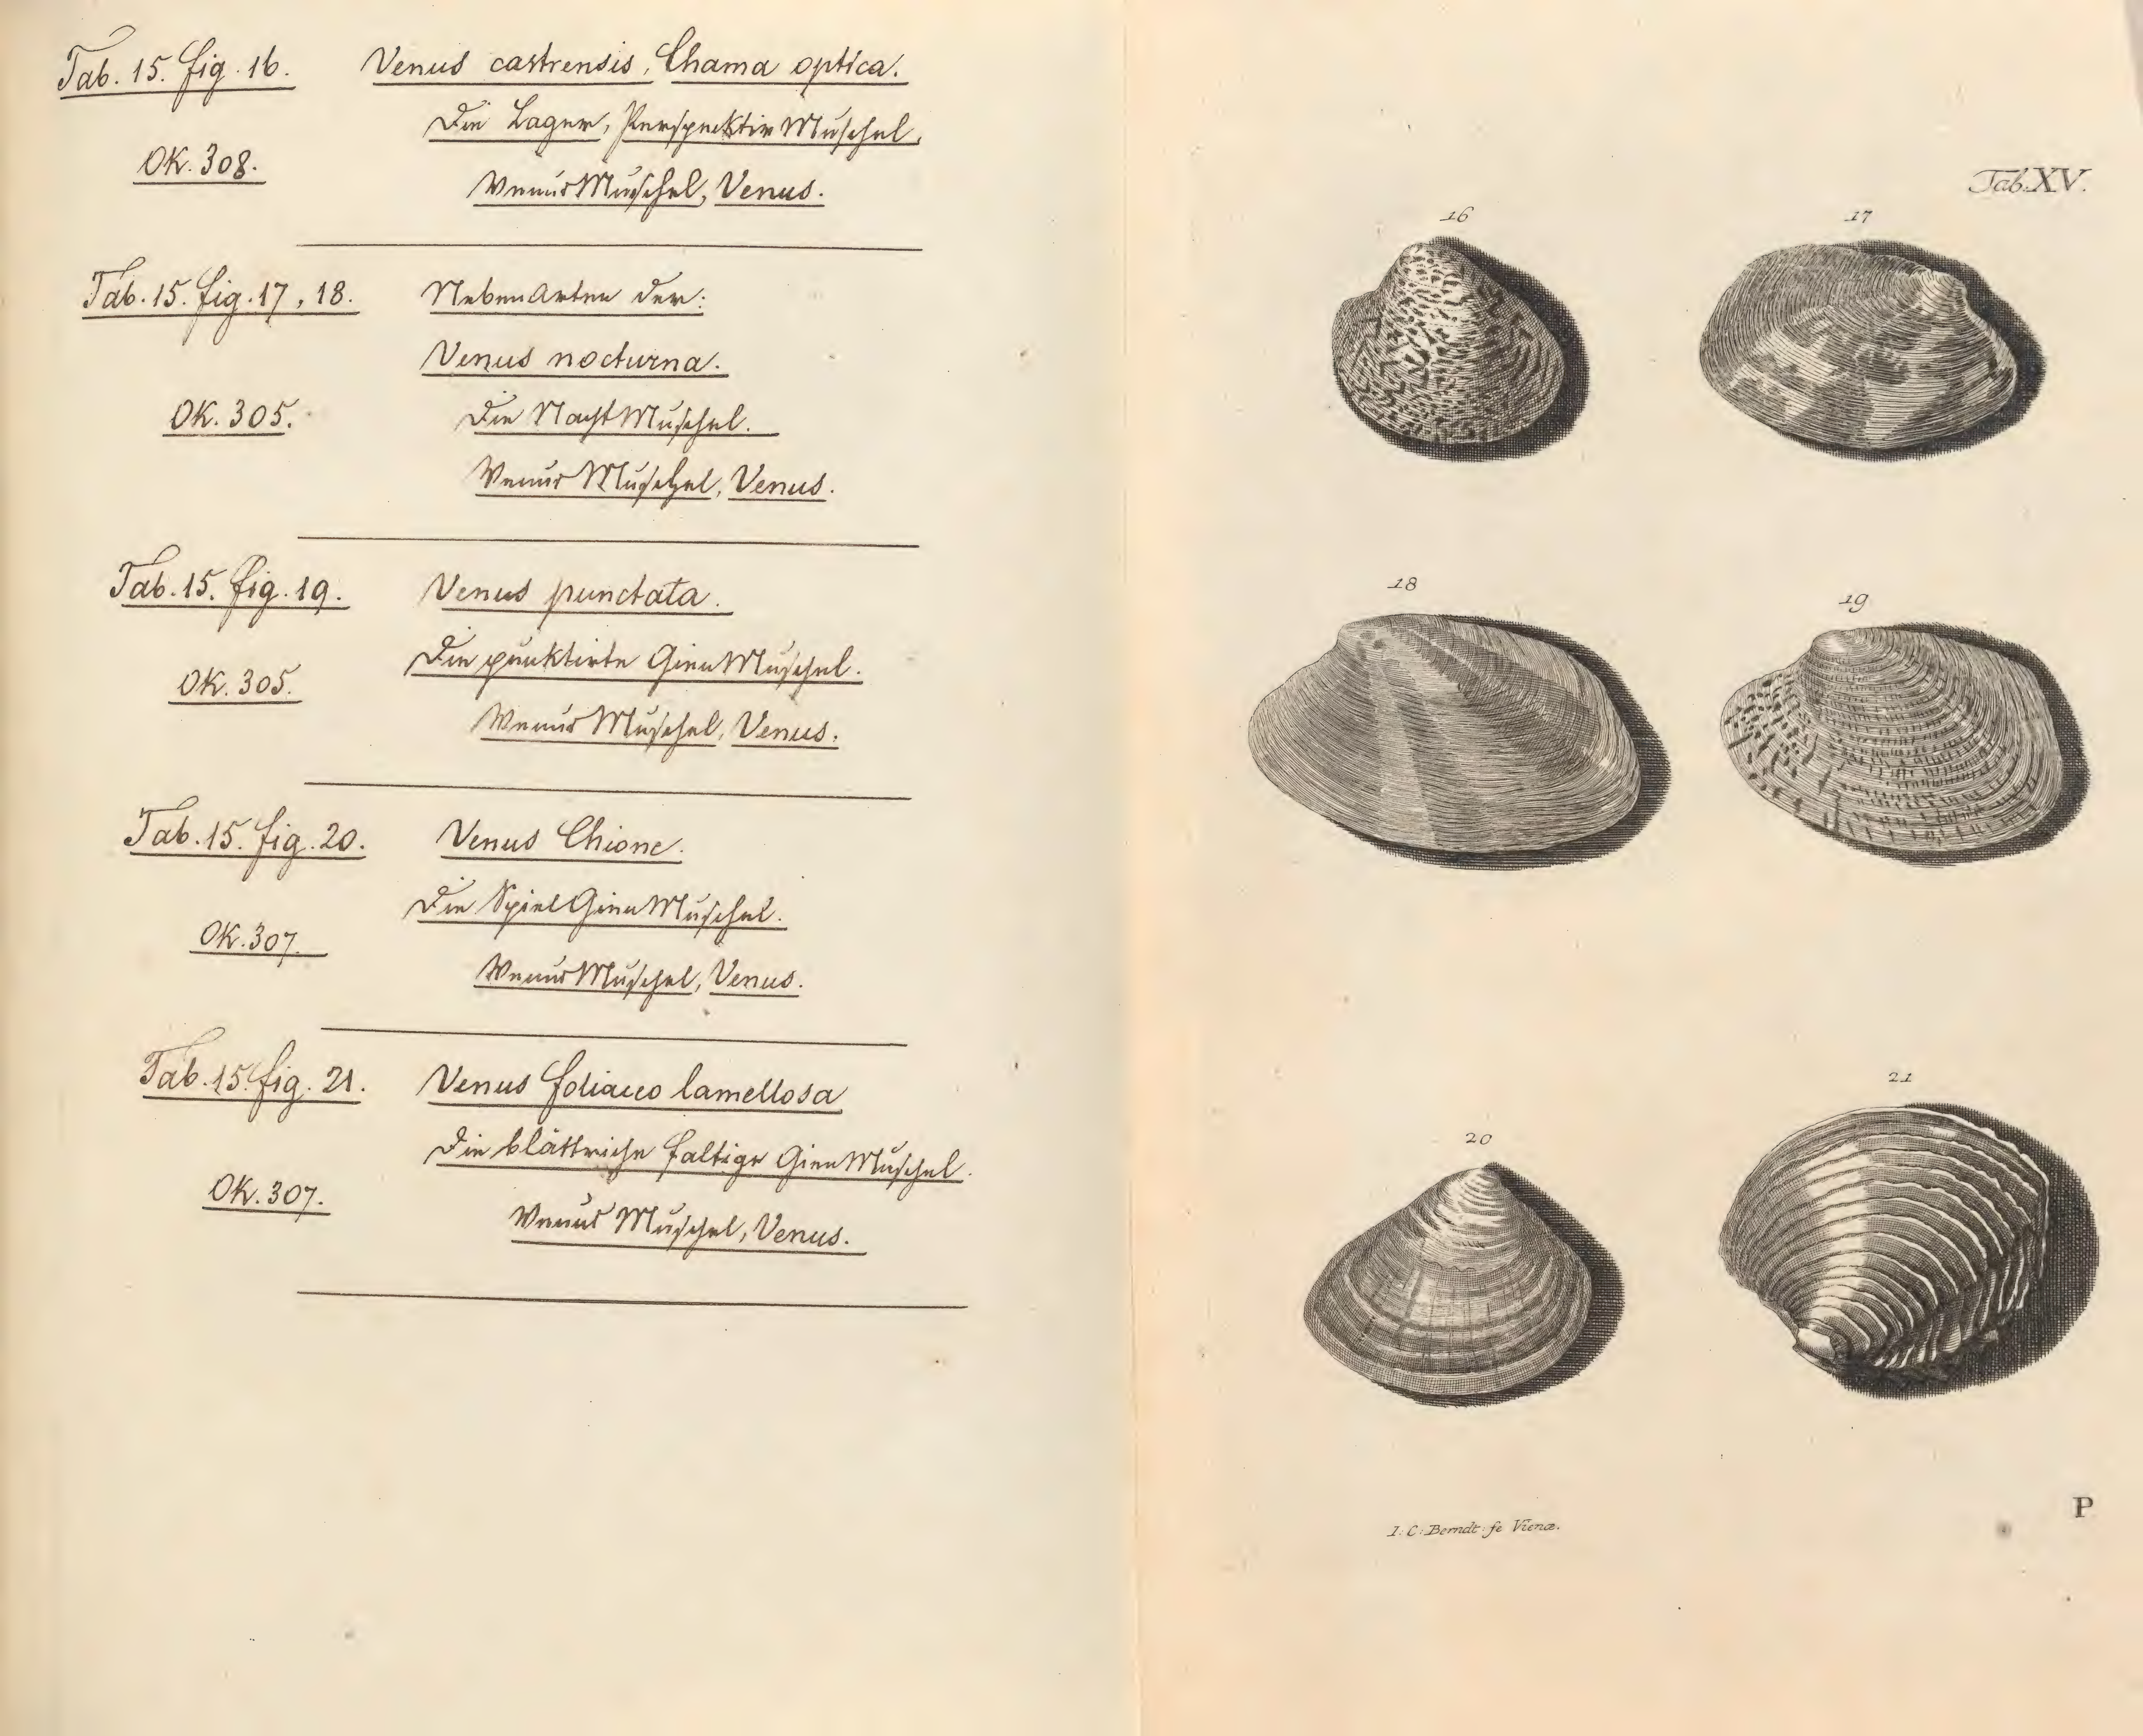 Tab. 15. fig. 16.
Venus castrensis, Chama optica.
Die Lager, Perspektiv Muschel,
OK. 308.
Venus Muschel, Venus.
Tab. 15. fig. 17, 18.
Neben Arten der:
Venus nocturna.
OK. 305.
Die Nacht Muschel.
Venus Muschel, Venus.
Tab. 15. fig. 19.
Venus punctata.
Die punktirte Gien Muschel.
OK. 305.
Venus Muschel, Venus.
Tab. 15. fig. 20.
Venus Chione.
Die Spiel Gien Muschel.
OK. 307.
Venus Muschel, Venus.
Tab. 15. fig. 21.
Venus foliaceo lamellosa
Die blättriche faltige Gien Muschel.
OK. 307.
Venus Muschel, Venus.
Tab. XV.
16
17
18
19
20
21
I: C: Berndt: fe Vienæ.
P